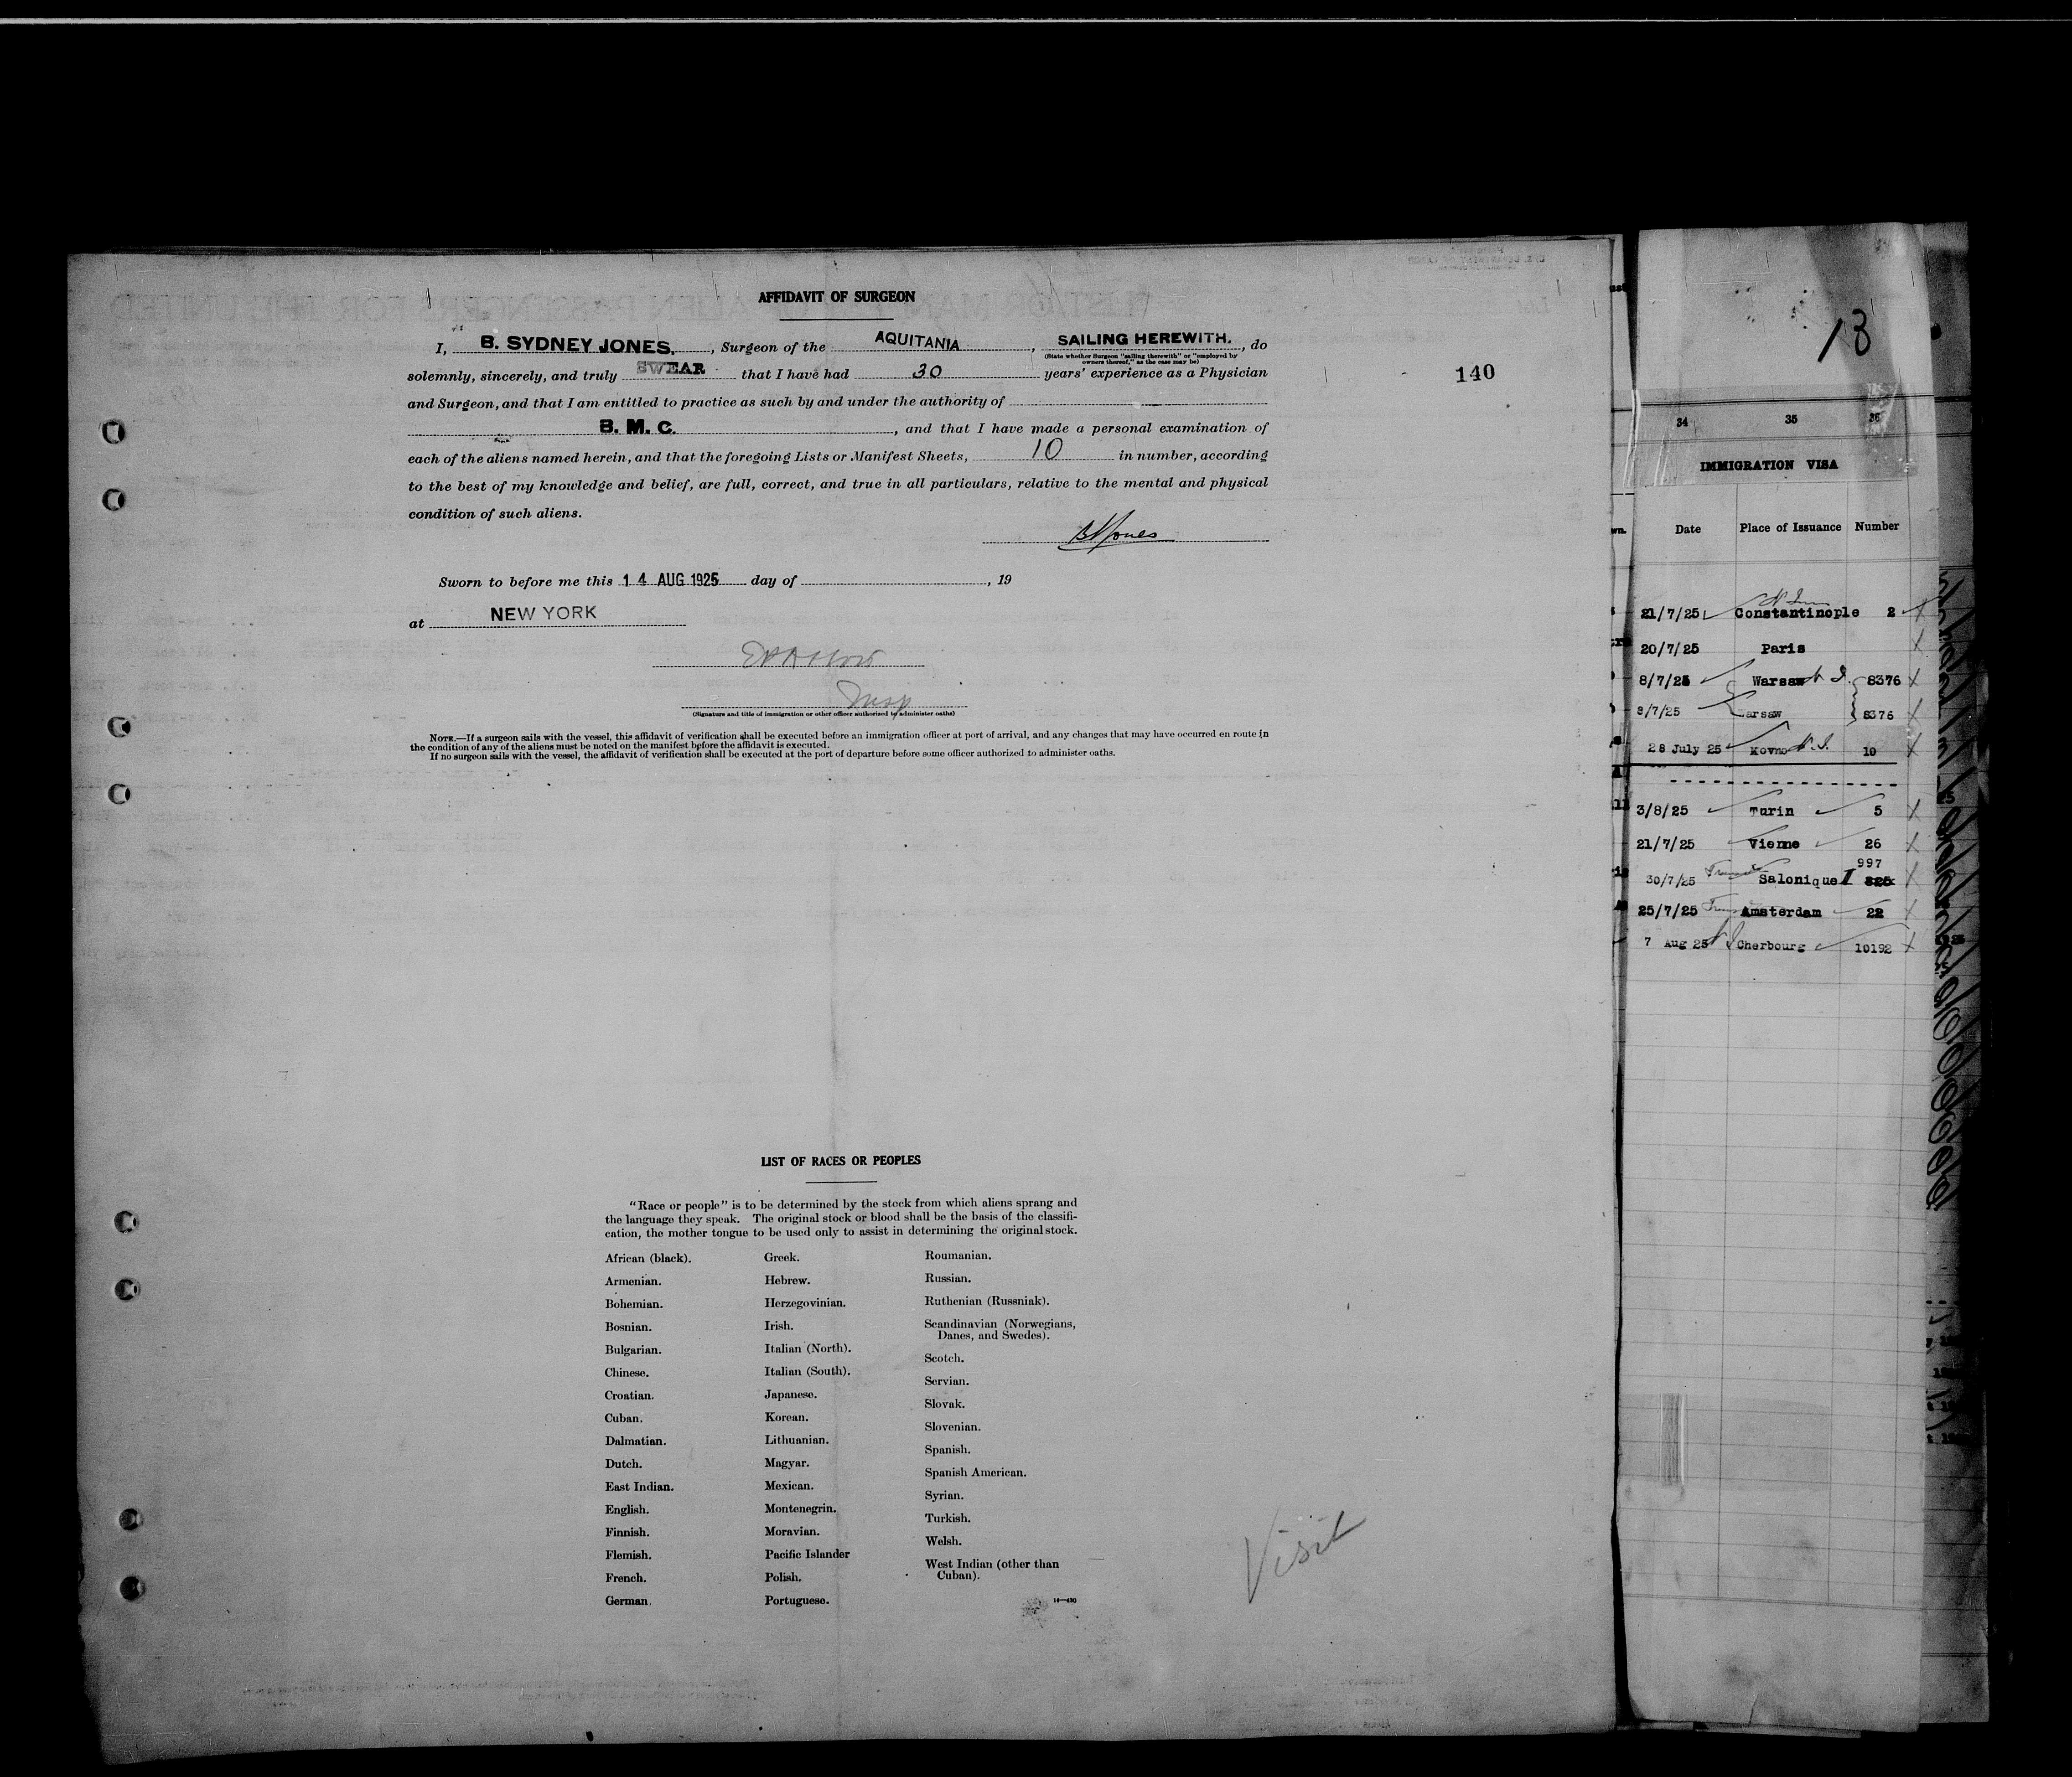 AFFIDAVIT OF SURGEON
I, B. SYDNEY JONES. , Surgeon of the AQUITANIA , SAILING HEREWITH. , do
(State whether Surgeon "sailing therewith" or "employed by
owners thereof," as the case may be)
solemnly, sincerely, and truly SWEAR that I have had 30 years' experience as a Physician
and Surgeon, and that I am entitled to practice as such by and under the authority of
B. M. C. , and that I have made a personal examination of
each of the aliens named herein, and that the foregoing Lists or Manifest Sheets, 10 in number, according
to the best of my knowledge and belief, are full, correct, and true in all particulars, relative to the mental and physical
condition of such aliens.
BSJones
Sworn to before me this 14 AUG 1925 day of , 19
at NEW YORK
Insp
(Signature and title of immigration or other officer authorized to administer oaths)
NOTE.—If a surgeon sails with the vessel, this affidavit of verification shall be executed before an immigration officer at port of arrival, and any changes that may have occurred en route in
the condition of any of the aliens must be noted on the manifest before the affidavit is executed.
If no surgeon sails with the vessel, the affidavit of verification shall be executed at the port of departure before some officer authorized to administer oaths.
140
LIST OF RACES OR PEOPLES
"Race or people" is to be determined by the stock from which aliens sprang and
the language they speak. The original stock or blood shall be the basis of the classifi-
cation, the mother tongue to be used only to assist in determining the original stock.
African (black).
Armenian.
Bohemian.
Bosnian.
Bulgarian.
Chinese.
Croatian.
Cuban.
Dalmatian.
Dutch.
East Indian.
English.
Finnish.
Flemish.
French.
German.
Greek.
Hebrew.
Herzegovinian.
Irish.
Italian (North).
Italian (South).
Japanese.
Korean.
Lithuanian.
Magyar.
Mexican.
Montenegrin.
Moravian.
Pacific Islander
Polish.
Portuguese.
Roumanian.
Russian.
Ruthenian (Russniak).
Scandinavian (Norwegians,
Danes, and Swedes).
Scotch.
Servian.
Slovak.
Slovenian.
Spanish.
Spanish American.
Syrian.
Turkish.
Welsh.
West Indian (other than
Cuban).
Visit
13
34 35 36
IMMIGRATION VISA
Date Place of Issuance Number
21/7/25 Constantinople 2
20/7/25 Paris
8/7/25 Warsaw 8376
8/7/25 arsaw 8376
28 July 25 Kovno 10
3/8/25 Turin 5
21/7/25 Vienne 26
997
30/7/25 Salonique
25/7/25 Amsterdam 22
7 Aug 25 Cherbourg 10192